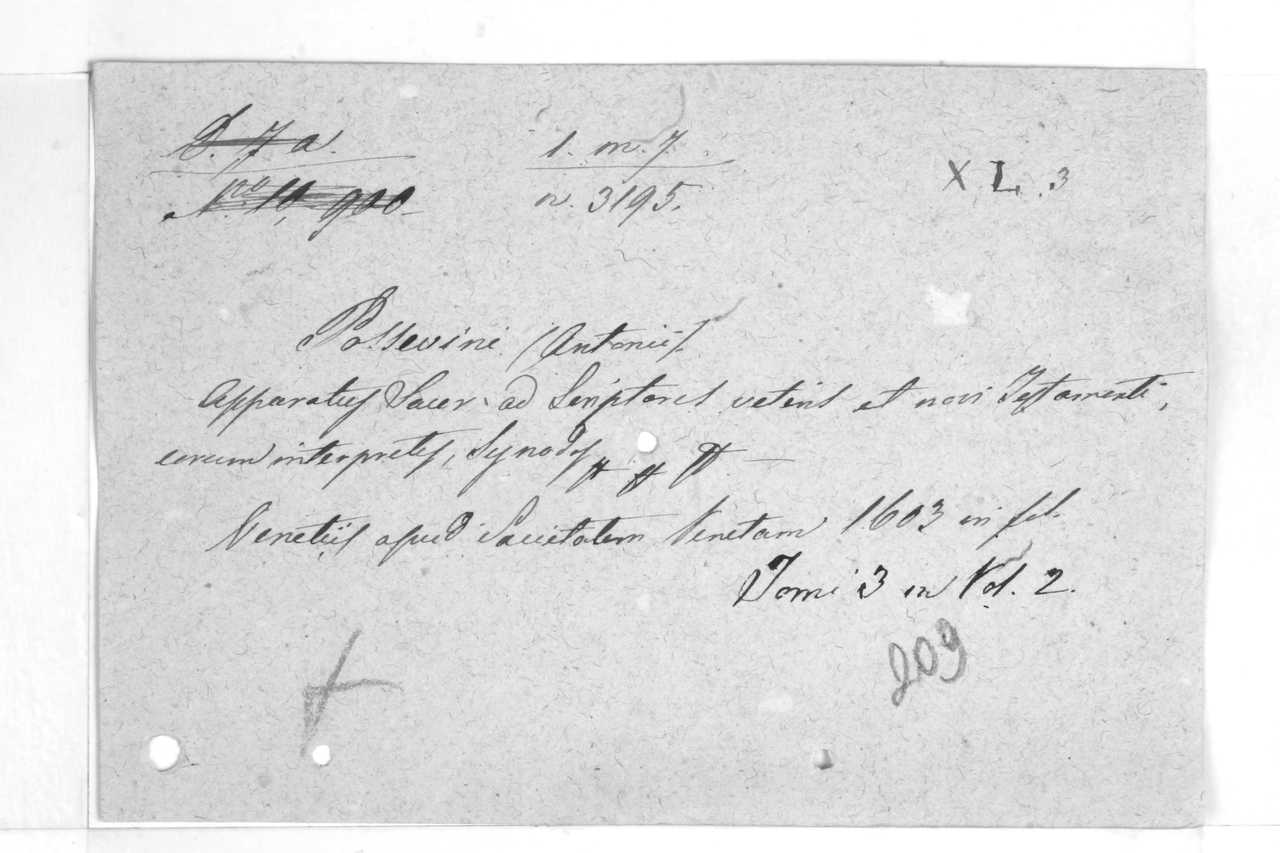 D. 7 a. 1. m. 7. X L. 3
Nro 10,900 n. 3195.
Possevini (Antonii)
Apparatus Sacer ad Scriptores veteris et novi Testamenti,
eorum interpretes, Synodos
Venetiis apud Societatem Venetam 1603 in fol.
Tomi 3 in Vol. 2.
209